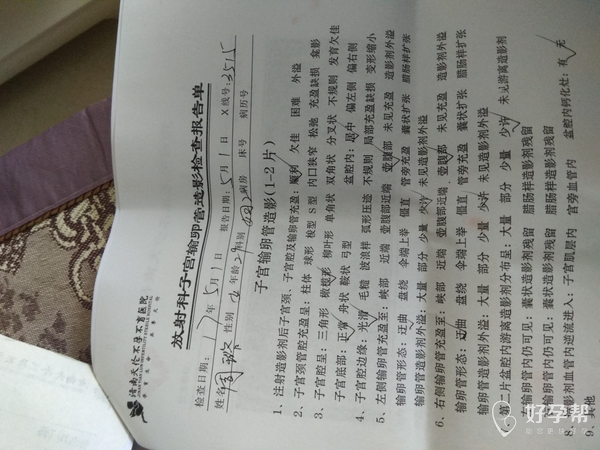 济南天伦不孕不育医院
放射科子宫输卵管造影检查报告单
检查日期：17年5月1日 报告日期：5月1日 X线号：3515
姓名 性别 女 年龄 科别 病房 床号 病历号
子宫输卵管造影(1-2片)
1、注射造影剂后子宫颈、子宫腔及输卵管充盈：顺利 欠佳 困难 外溢
2、子宫颈管腔充盈呈：柱体 球形 梭型 S型 内口狭窄 松弛 充盈缺损 龛影
3、子宫腔呈：三角形 橄榄形 柳叶形 单角状 双角状 分叉状 不规则 发育欠佳
子宫底部：正常 舟状 鞍状 弓型 盆腔内：居中 偏左侧 偏右侧
4、子宫腔边缘：光滑 毛糙 波浪样 弧形压迹 不规则 局部充盈缺损 变形缩小
5、左侧输卵管充盈至：峡部 近端 壶腹部近端 壶腹部 未见充盈 造影剂外溢
输卵管形态：迂曲 盘绕 伞端上举 僵直 管旁充盈 囊状扩张 腊肠样扩张
输卵管造影剂外溢：大量 部分 少量 少许 未见造影剂外溢
6、右侧输卵管充盈至：峡部 近端 壶腹部近端 壶腹部 未见充盈 造影剂外溢
输卵管形态：迂曲 盘绕 伞端上举 僵直 管旁充盈 囊状扩张 腊肠样扩张
输卵管造影剂外溢：大量 部分 少量 少许 未见造影剂外溢
7、第二片盆腔内游离造影剂分布呈：大量 部分 少量 少许 未见游离造影剂
左输卵管内仍可见：囊状造影剂残留 腊肠样造影剂残留
右输卵管内仍可见：囊状造影剂残留 腊肠样造影剂残留
8、造影剂血管内逆流进入：子宫肌层内 宫旁血管内 盆腔内钙化灶：有 无
9、其他
好孕帮